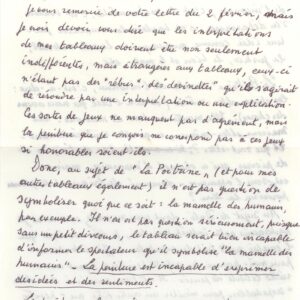 je vous remercie de votre lettre du 2 février, mais
je vous devoir vous dire que les interprétations
de mes tableaux doivent être non seulement
indifférentes, mais étrangères aux tableaux, ceux-ci
n'étant pas des "rébus", des "devinettes" qu'il s'agirait
de résoudre par une interprétation ou une explication.
Ces sortes de jeux ne manquent pas d'agrément, mais
la peinture que je conçois ne correspond pas à ces jeux
si honorables soient-ils.
Donc, au sujet de "La Poitrine" (et pour mes
autres tableaux également) il n'est pas question de
symboliser quoi que ce soit : la mamelle des humains,
par exemple. Il n'en est pas question sérieusement, puisque
sans un petit discours, le tableau serait bien incapable
d'informer le spectateur qu'il symbolise "la mamelle des
humains". La peinture est incapable d'exprimer
des idées et des sentiments.